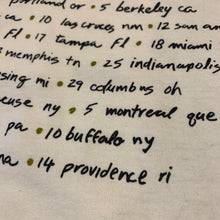 portland or • 5 berkeley ca
ca • 10 las cruces nm • 12 san an
fl • 17 tampa fl • 18 miami
memphis tn • 25 indianapolis
sing mi • 29 columbus oh
cuse ny • 5 montreal que
pa • 10 buffalo ny
na • 14 providence ri